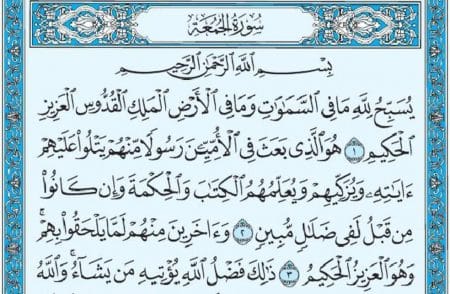 سُورَةُ الجُمُعَةِ
بِسْمِ ٱللَّهِ ٱلرَّحْمَٰنِ ٱلرَّحِيمِ
يُسَبِّحُ لِلَّهِ مَا فِي ٱلسَّمَٰوَٰتِ وَمَا فِي ٱلْأَرْضِ ٱلْمَلِكِ ٱلْقُدُّوسِ ٱلْعَزِيزِ
ٱلْحَكِيمِ ١ هُوَ ٱلَّذِي بَعَثَ فِي ٱلْأُمِّيِّـۧنَ رَسُولًا مِّنْهُمْ يَتْلُوا۟ عَلَيْهِمْ
ءَايَٰتِهِۦ وَيُزَكِّيهِمْ وَيُعَلِّمُهُمُ ٱلْكِتَٰبَ وَٱلْحِكْمَةَ وَإِن كَانُوا۟
مِن قَبْلُ لَفِي ضَلَٰلٍ مُّبِينٍ ٢ وَءَاخَرِينَ مِنْهُمْ لَمَّا يَلْحَقُوا۟ بِهِمْ ۚ
وَهُوَ ٱلْعَزِيزُ ٱلْحَكِيمُ ٣ ذَٰلِكَ فَضْلُ ٱللَّهِ يُؤْتِيهِ مَن يَشَآءُ ۚ وَٱللَّهُ